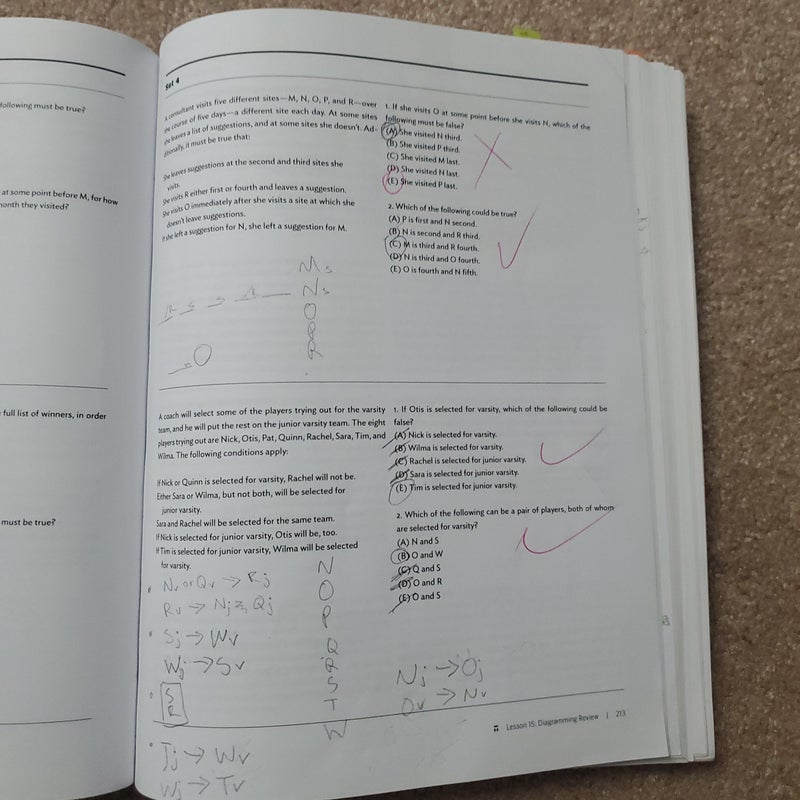 following must be true?
at some point before M, for how
month they visited?
full list of winners, in order
must be true?
Set 4
A consultant visits five different sites—M, N, O, P, and R—over
the course of five days—a different site each day. At some sites
she leaves a list of suggestions, and at some sites she doesn't. Ad-
ditionally, it must be true that:
She leaves suggestions at the second and third sites she
visits.
She visits R either first or fourth and leaves a suggestion.
She visits O immediately after she visits a site at which she
doesn't leave suggestions.
If she left a suggestion for N, she left a suggestion for M.
Ms
Ns
O
P
R s s R
O
1. If she visits O at some point before she visits N, which of the
following must be false?
(A) She visited N third.
(B) She visited P third.
(C) She visited M last.
(D) She visited N last.
(E) She visited P last.
2. Which of the following could be true?
(A) P is first and N second.
(B) N is second and R third.
(C) M is third and R fourth.
(D) N is third and O fourth.
(E) O is fourth and N fifth.
A coach will select some of the players trying out for the varsity
team, and he will put the rest on the junior varsity team. The eight
players trying out are Nick, Otis, Pat, Quinn, Rachel, Sara, Tim, and
Wilma. The following conditions apply:
If Nick or Quinn is selected for varsity, Rachel will not be.
Either Sara or Wilma, but not both, will be selected for
junior varsity.
Sara and Rachel will be selected for the same team.
If Nick is selected for junior varsity, Otis will be, too.
If Tim is selected for junior varsity, Wilma will be selected
for varsity.
Nv or Qv → Rj
Rv → Nj Qj
Sj → Wv
Wj → Sv
S
R
Tj → Wv
Wj → Tv
N
O
P
Q
R
S
T
W
1. If Otis is selected for varsity, which of the following could be
false?
(A) Nick is selected for varsity.
(B) Wilma is selected for varsity.
(C) Rachel is selected for junior varsity.
(D) Sara is selected for junior varsity.
(E) Tim is selected for junior varsity.
2. Which of the following can be a pair of players, both of whom
are selected for varsity?
(A) N and S
(B) O and W
(C) Q and S
(D) O and R
(E) O and S
Nj → Oj
Ov → Nv
Lesson 15: Diagramming Review | 213